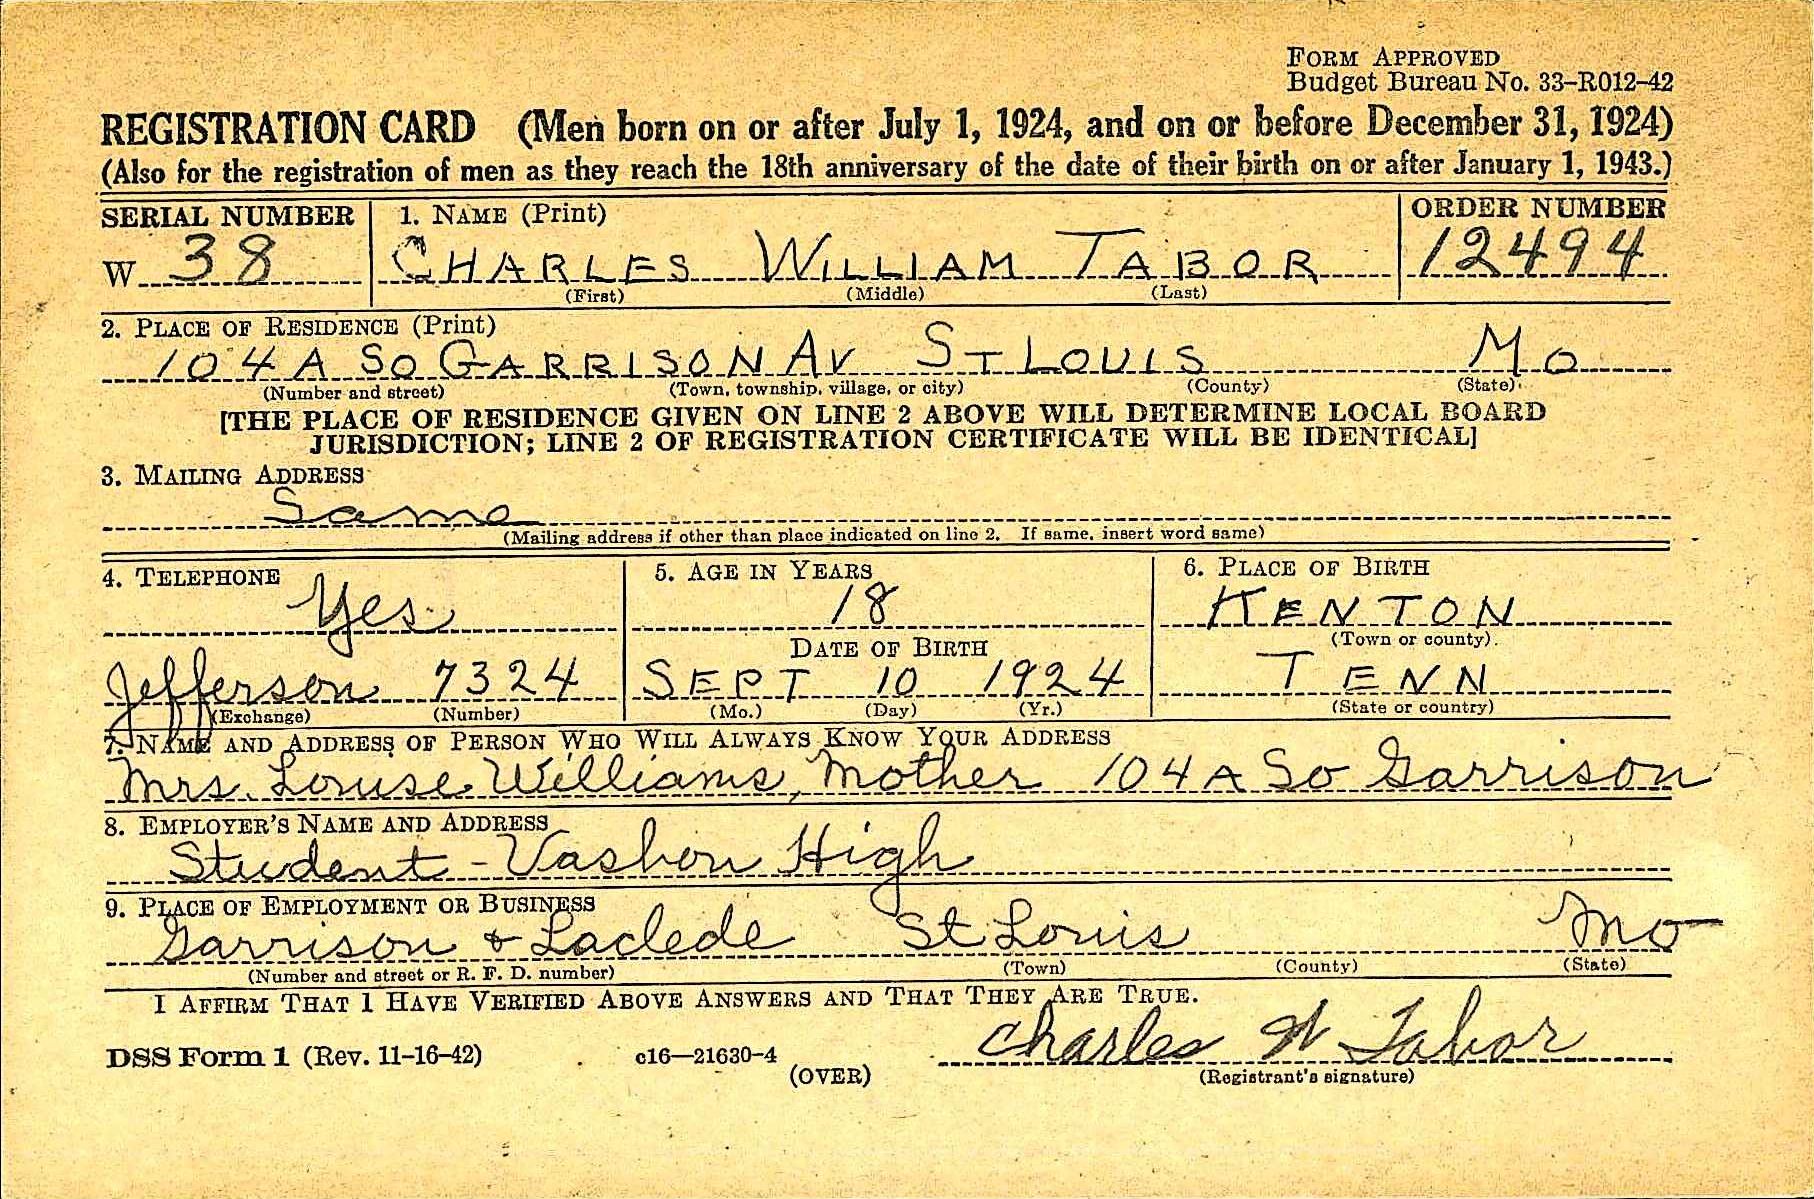 FORM APPROVED
Budget Bureau No. 33-R012-42
REGISTRATION CARD (Men born on or after July 1, 1924, and on or before December 31, 1924)
(Also for the registration of men as they reach the 18th anniversary of the date of their birth on or after January 1, 1943.)
SERIAL NUMBER 1. NAME (Print) ORDER NUMBER
W 38 CHARLES WILLIAM TABOR 12494
(First) (Middle) (Last)
2. PLACE OF RESIDENCE (Print)
104A SO GARRISON AV ST LOUIS MO
(Number and street) (Town, township, village, or city) (County) (State)
[THE PLACE OF RESIDENCE GIVEN ON LINE 2 ABOVE WILL DETERMINE LOCAL BOARD
JURISDICTION; LINE 2 OF REGISTRATION CERTIFICATE WILL BE IDENTICAL]
3. MAILING ADDRESS
Same
(Mailing address if other than place indicated on line 2. If same, insert word same)
4. TELEPHONE 5. AGE IN YEARS 6. PLACE OF BIRTH
Yes 18 KENTON
DATE OF BIRTH (Town or county)
Jefferson 7324 SEPT 10 1924 TENN
(Exchange) (Number) (Mo.) (Day) (Yr.) (State or country)
7. NAME AND ADDRESS OF PERSON WHO WILL ALWAYS KNOW YOUR ADDRESS
Mrs. Louise Williams, Mother 104A So Garrison
8. EMPLOYER'S NAME AND ADDRESS
Student - Vashon High
9. PLACE OF EMPLOYMENT OR BUSINESS
Garrison & Laclede St Louis Mo
(Number and street or R. F. D. number) (Town) (County) (State)
I AFFIRM THAT I HAVE VERIFIED ABOVE ANSWERS AND THAT THEY ARE TRUE.
Charles W Tabor
DSS Form 1 (Rev. 11-16-42) c16—21630-4
(OVER) (Registrant's signature)